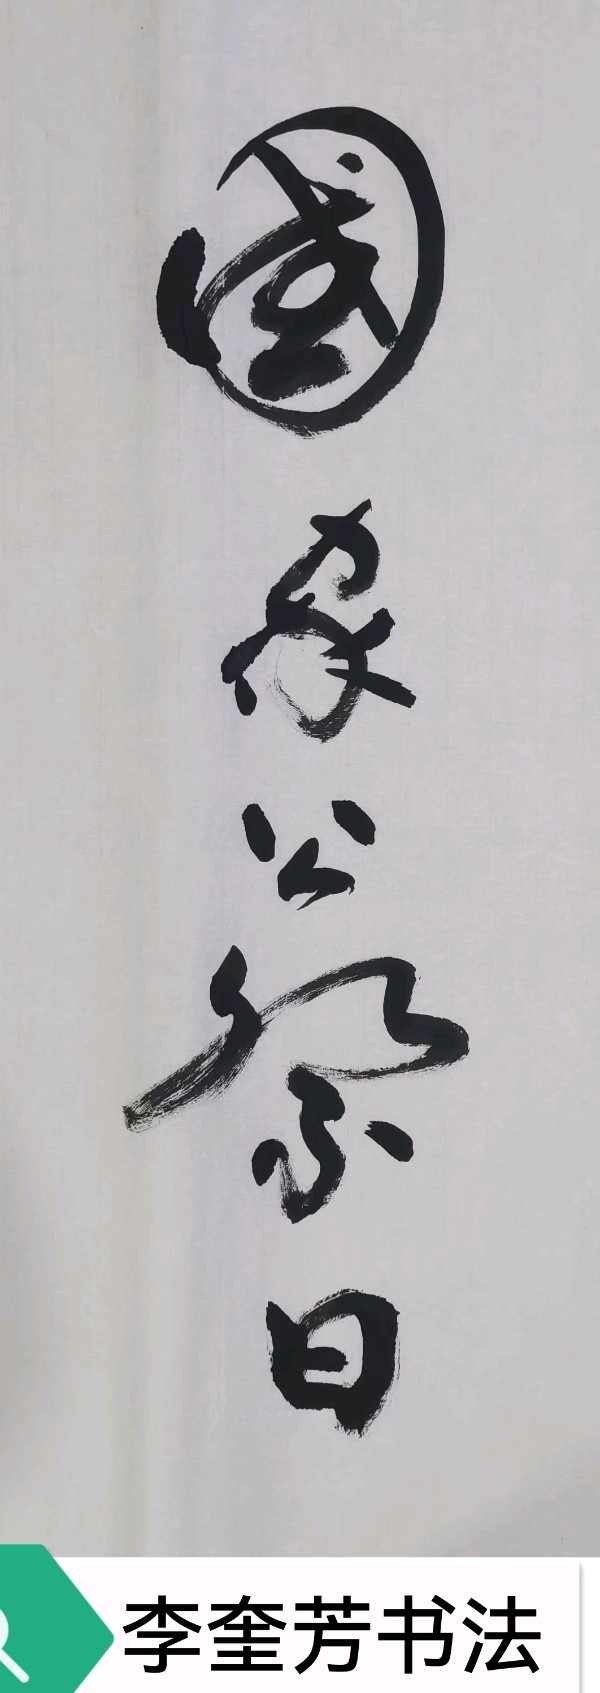 國家公祭日
李奎芳书法